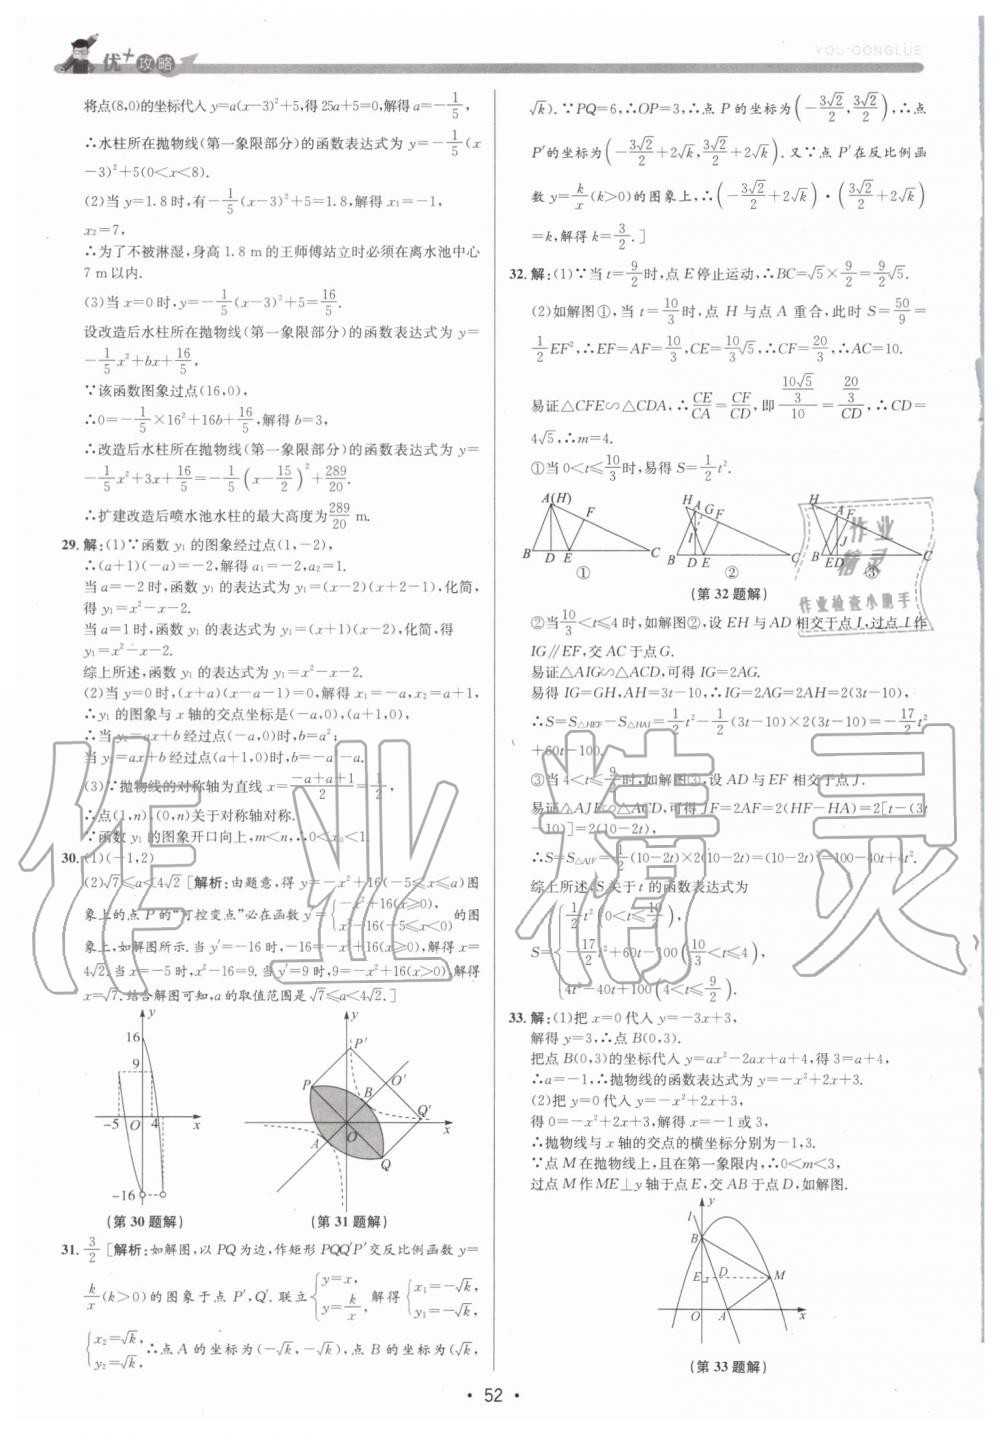 优+攻略
YOU+GONGLÜE
将点(8,0)的坐标代入 y=a(x-3)²+5,得 25a+5=0,解得 a=-1/5,
∴水柱所在抛物线(第一象限部分)的函数表达式为 y=-1/5(x
-3)²+5(0<x<8).
(2)当 y=1.8 时,有-1/5(x-3)²+5=1.8,解得 x₁=-1,
x₂=7,
∴为了不被淋湿,身高 1.8 m 的王师傅站立时必须在离水池中心
7 m 以内.
(3)当 x=0 时,y=-1/5(x-3)²+5=16/5.
设改造后水柱所在抛物线(第一象限部分)的函数表达式为 y=
-1/5x²+bx+16/5,
∵该函数图象过点(16,0),
∴0=-1/5×16²+16b+16/5,解得 b=3,
∴改造后水柱所在抛物线(第一象限部分)的函数表达式为 y=
-1/5x²+3x+16/5=-1/5(x-15/2)²+289/20.
∴扩建改造后喷水池水柱的最大高度为289/20 m.
29. 解:(1)∵函数 y₁ 的图象经过点(1,-2),
∴(a+1)(-a)=-2,解得 a₁=-2,a₂=1.
当 a=-2 时,函数 y₁ 的表达式为 y₁=(x-2)(x+2-1),化简,
得 y₁=x²-x-2.
当 a=1 时,函数 y₁ 的表达式为 y₁=(x+1)(x-2),化简,得
y₁=x²-x-2.
综上所述,函数 y₁ 的表达式为 y₁=x²-x-2.
(2)当 y=0 时,(x+a)(x-a-1)=0,解得 x₁=-a,x₂=a+1,
∴y₁ 的图象与 x 轴的交点坐标是(-a,0),(a+1,0),
∴当 y₂=ax+b 经过点(-a,0)时,b=a²;
当 y₂=ax+b 经过点(a+1,0)时,b=-a²-a.
(3)∵抛物线的对称轴为直线 x=(-a+a+1)/2=1/2,
∴点(1,n),(0,n)关于对称轴对称.
∵函数 y₁ 的图象开口向上,m<n,∴0<x₀<1.
30. (1)(-1,2)
(2)√7≤a<4√2 [解析:由题意,得 y=-x²+16(-5≤x≤a)图
象上的点 P 的“可控变点”必在函数 y′={-x²+16(x≥0), x²-16(-5≤x<0) 的图
象上,如解图所示.当 y′=-16 时,-16=-x²+16(x≥0),解得 x=
4√2.当 x=-5 时,x²-16=9.当 y′=9 时,9=-x²+16(x>0),解得
x=√7.结合解图可知,a 的取值范围是 √7≤a<4√2.]
y 16 9 -5 O 4 x -16
(第 30 题解)
y P′ P B O′ Q′ A O Q x
(第 31 题解)
31. 3/2 [解析:如解图,以 PQ 为边,作矩形 PQQ′P′交反比例函数 y=
k/x(k>0)的图象于点 P′,Q′.联立{y=x, y=k/x, 解得{x₁=-√k, y₁=-√k,
{x₂=√k, y₂=√k, ∴点 A 的坐标为(-√k,-√k),点 B 的坐标为(√k,
√k).∵PQ=6,∴OP=3,∴点 P 的坐标为(-3√2/2,3√2/2),∴点
P′的坐标为(-3√2/2+2√k,3√2/2+2√k).又∵点 P′在反比例函
数 y=k/x(k>0)的图象上,∴(-3√2/2+2√k)·(3√2/2+2√k)
=k,解得 k=3/2.]
32. 解:(1)∵当 t=9/2时,点 E 停止运动,∴BC=√5×9/2=9/2√5.
(2)如解图①,当 t=10/3时,点 H 与点 A 重合,此时 S=50/9=
1/2EF²,∴EF=AF=10/3,CE=10/3√5,∴CF=20/3,∴AC=10.
易证△CFE∽△CDA,∴CE/CA=CF/CD,即(10√5/3)/10=(20/3)/CD,∴CD=
4√5,∴m=4.
①当 0<t≤10/3时,易得 S=1/2t².
A(H) F B D E C ①
H A G F I B D E C ②
H A F J B E D C ③
(第 32 题解)
作业
精灵
作业检查小助手
②当10/3<t≤4 时,如解图②,设 EH 与 AD 相交于点 I,过点 I 作
IG∥EF,交 AC 于点 G.
易证△AIG∽△ACD,可得 IG=2AG.
易得 IG=GH,AH=3t-10,∴IG=2AG=2AH=2(3t-10),
∴S=S△HEF-S△HAI=1/2t²-1/2(3t-10)×2(3t-10)=-17/2t²
+60t-100.
③当 4<t≤9/2时,如解图③,设 AD 与 EF 相交于点 J.
易证△AJF∽△ACD,可得 JF=2AF=2(HF-HA)=2[t-(3t
-10)]=2(10-2t),
∴S=S△AJF=1/2(10-2t)×2(10-2t)=(10-2t)²=100-40t+4t².
综上所述,S 关于 t 的函数表达式为
S={1/2t²(0<t≤10/3),
-17/2t²+60t-100(10/3<t≤4)
4t²-40t+100(4<t≤9/2).
33. 解:(1)把 x=0 代入 y=-3x+3,
解得 y=3,∴点 B(0,3).
把点 B(0,3)的坐标代入 y=ax²-2ax+a+4,得 3=a+4,
∴a=-1,∴抛物线的函数表达式为 y=-x²+2x+3.
(2)把 y=0 代入 y=-x²+2x+3,
得 0=-x²+2x+3,解得 x=-1 或 3,
∴抛物线与 x 轴的交点的横坐标分别为-1,3.
∵点 M 在抛物线上,且在第一象限内,∴0<m<3,
过点 M 作 ME⊥y 轴于点 E,交 AB 于点 D,如解图.
l y B E D M O A x
(第 33 题解)
作业精灵
· 52 ·